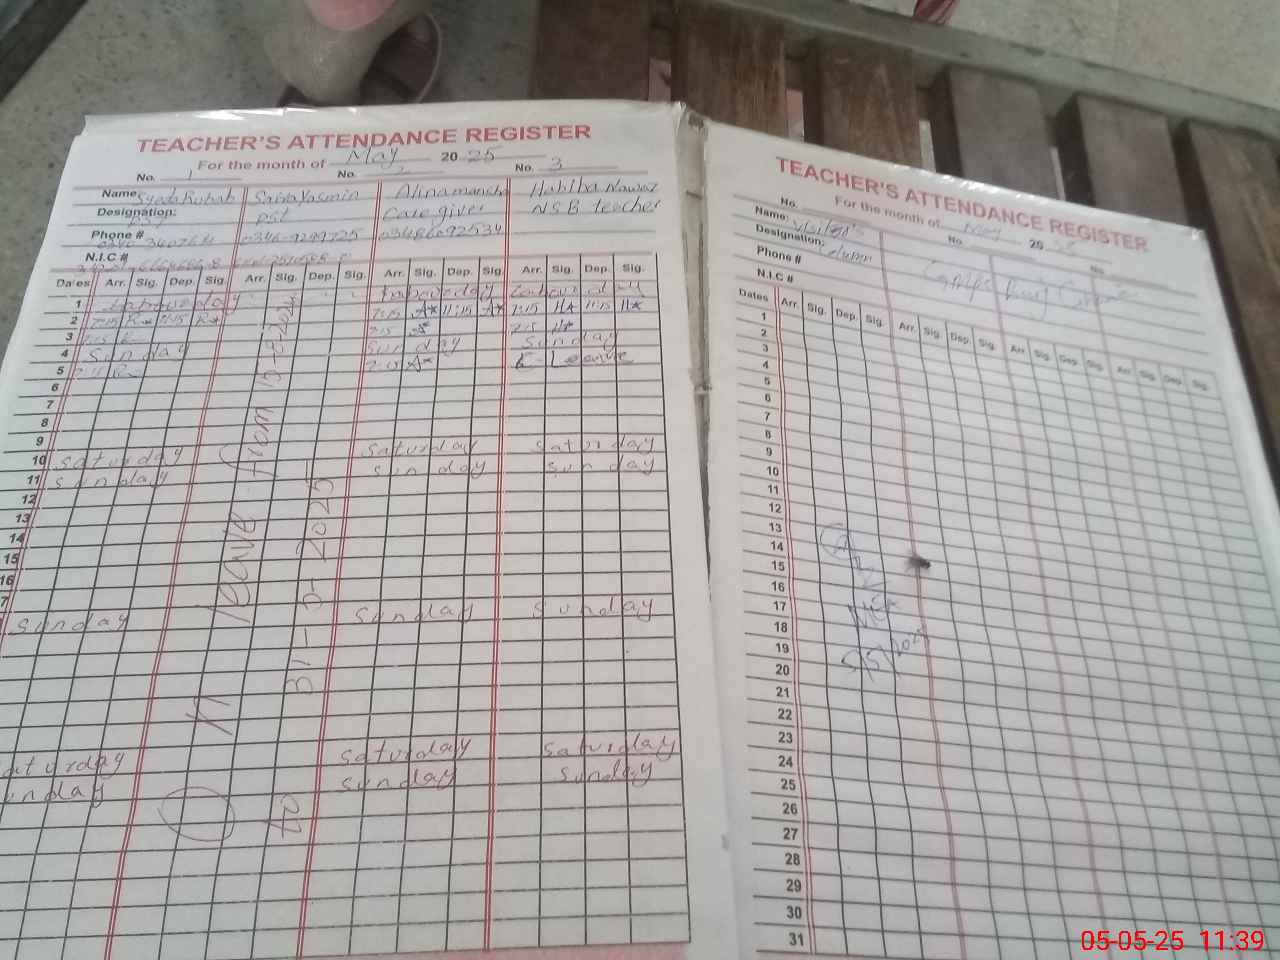 TEACHER'S ATTENDANCE REGISTER
For the month of May 20 25
No. 1 No. 2 No. 3
Name: Syeda Rubab Saiba Yasmin Alina manisha Habiba Nawaz
Designation: PST PST Care giver NSB teacher
Phone # 0346-9299725 03486092534
N.I.C #
Dates Arr. Sig. Dep. Sig. Arr. Sig. Dep. Sig. Arr. Sig. Dep. Sig. Arr. Sig. Dep. Sig.
1 Labour day Labour day Labour day
2 7:15 R* 11:15 R* 7:15 A* 11:15 A* 7:15 H* 11:15 H*
3 7:15 R 7:15 A 7:15 H*
4 Sunday Sunday Sunday
5 7:15 R 7:15 A* C-Leave
6
7
8
9
10 Saturday Saturday Saturday
11 Sunday Sunday Sunday
12
13
14
15
16
7
Sunday Sunday Sunday
aturday Saturday Saturday
unday Sunday Sunday
leave from
to 31-5-2025
TEACHER'S ATTENDANCE REGISTER
For the month of May 20 25
No. No. No.
Name: Visiter's
Designation: Column
Phone #
N.I.C #
Dates Arr. Sig. Dep. Sig. Arr. Sig. Dep. Sig. Arr. Sig. Dep. Sig. Arr. Sig. Dep. Sig.
1
2
3
4
5
6
7
8
9
10
11
12
13
14
15
16
17
18
19
20
21
22
23
24
25
26
27
28
29
30
31
MEA
5/5/2025
05-05-25 11:39